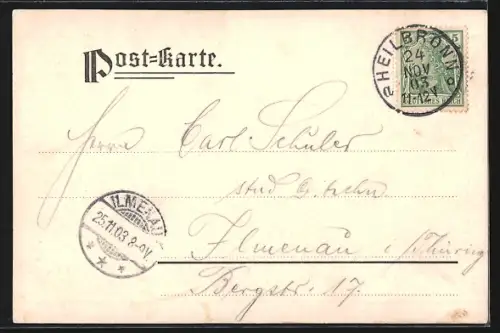 Post=Karte.
5
HEILBRONN
24
NOV
03
11-12V
Herrn Carl Schüler
stud
Ilmenau i/Thüring
Bergstr. 17.
ILMENAU
25.11.03 8-9V.